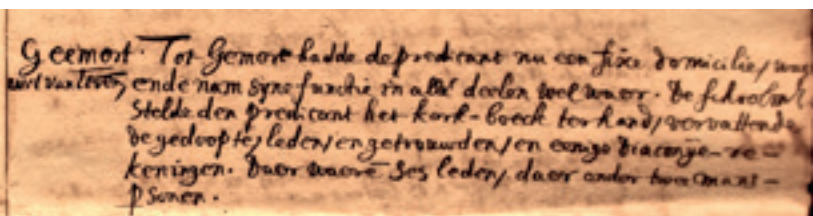 Geemort. Tot Gemort hadde de predicant nu een fixe domicilie, was
wel van leven, ende nam syne functie in alle deelen wel waer. De schoolm.
Stelde den predicant het kerk-boeck ter hand, vervattende
de gedoopte, leden, en getrouwden, en eenige diaconije-re-
keningen. Daer waere ses leden, daer onder twee mans-
psonen.